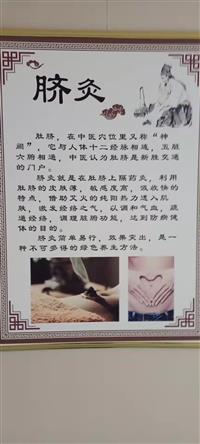 脐灸
肚脐，在中医穴位里又称“神
阙”，它与人体十二经脉相连，五脏
六腑相通，中医认为肚脐是新陈交通
的门户。
脐灸就是在肚脐上隔药灸，利用
肚脐的皮肤薄，敏感度高，吸收快的
特点，借助艾火的纯阳热力透入肌
肤，激发经络之气，以调和气血，疏
通经络，调理脏腑功能，达到防病健
体的目的。
脐灸简单易行，效果突出，是一
种不可多得的绿色养生方法。